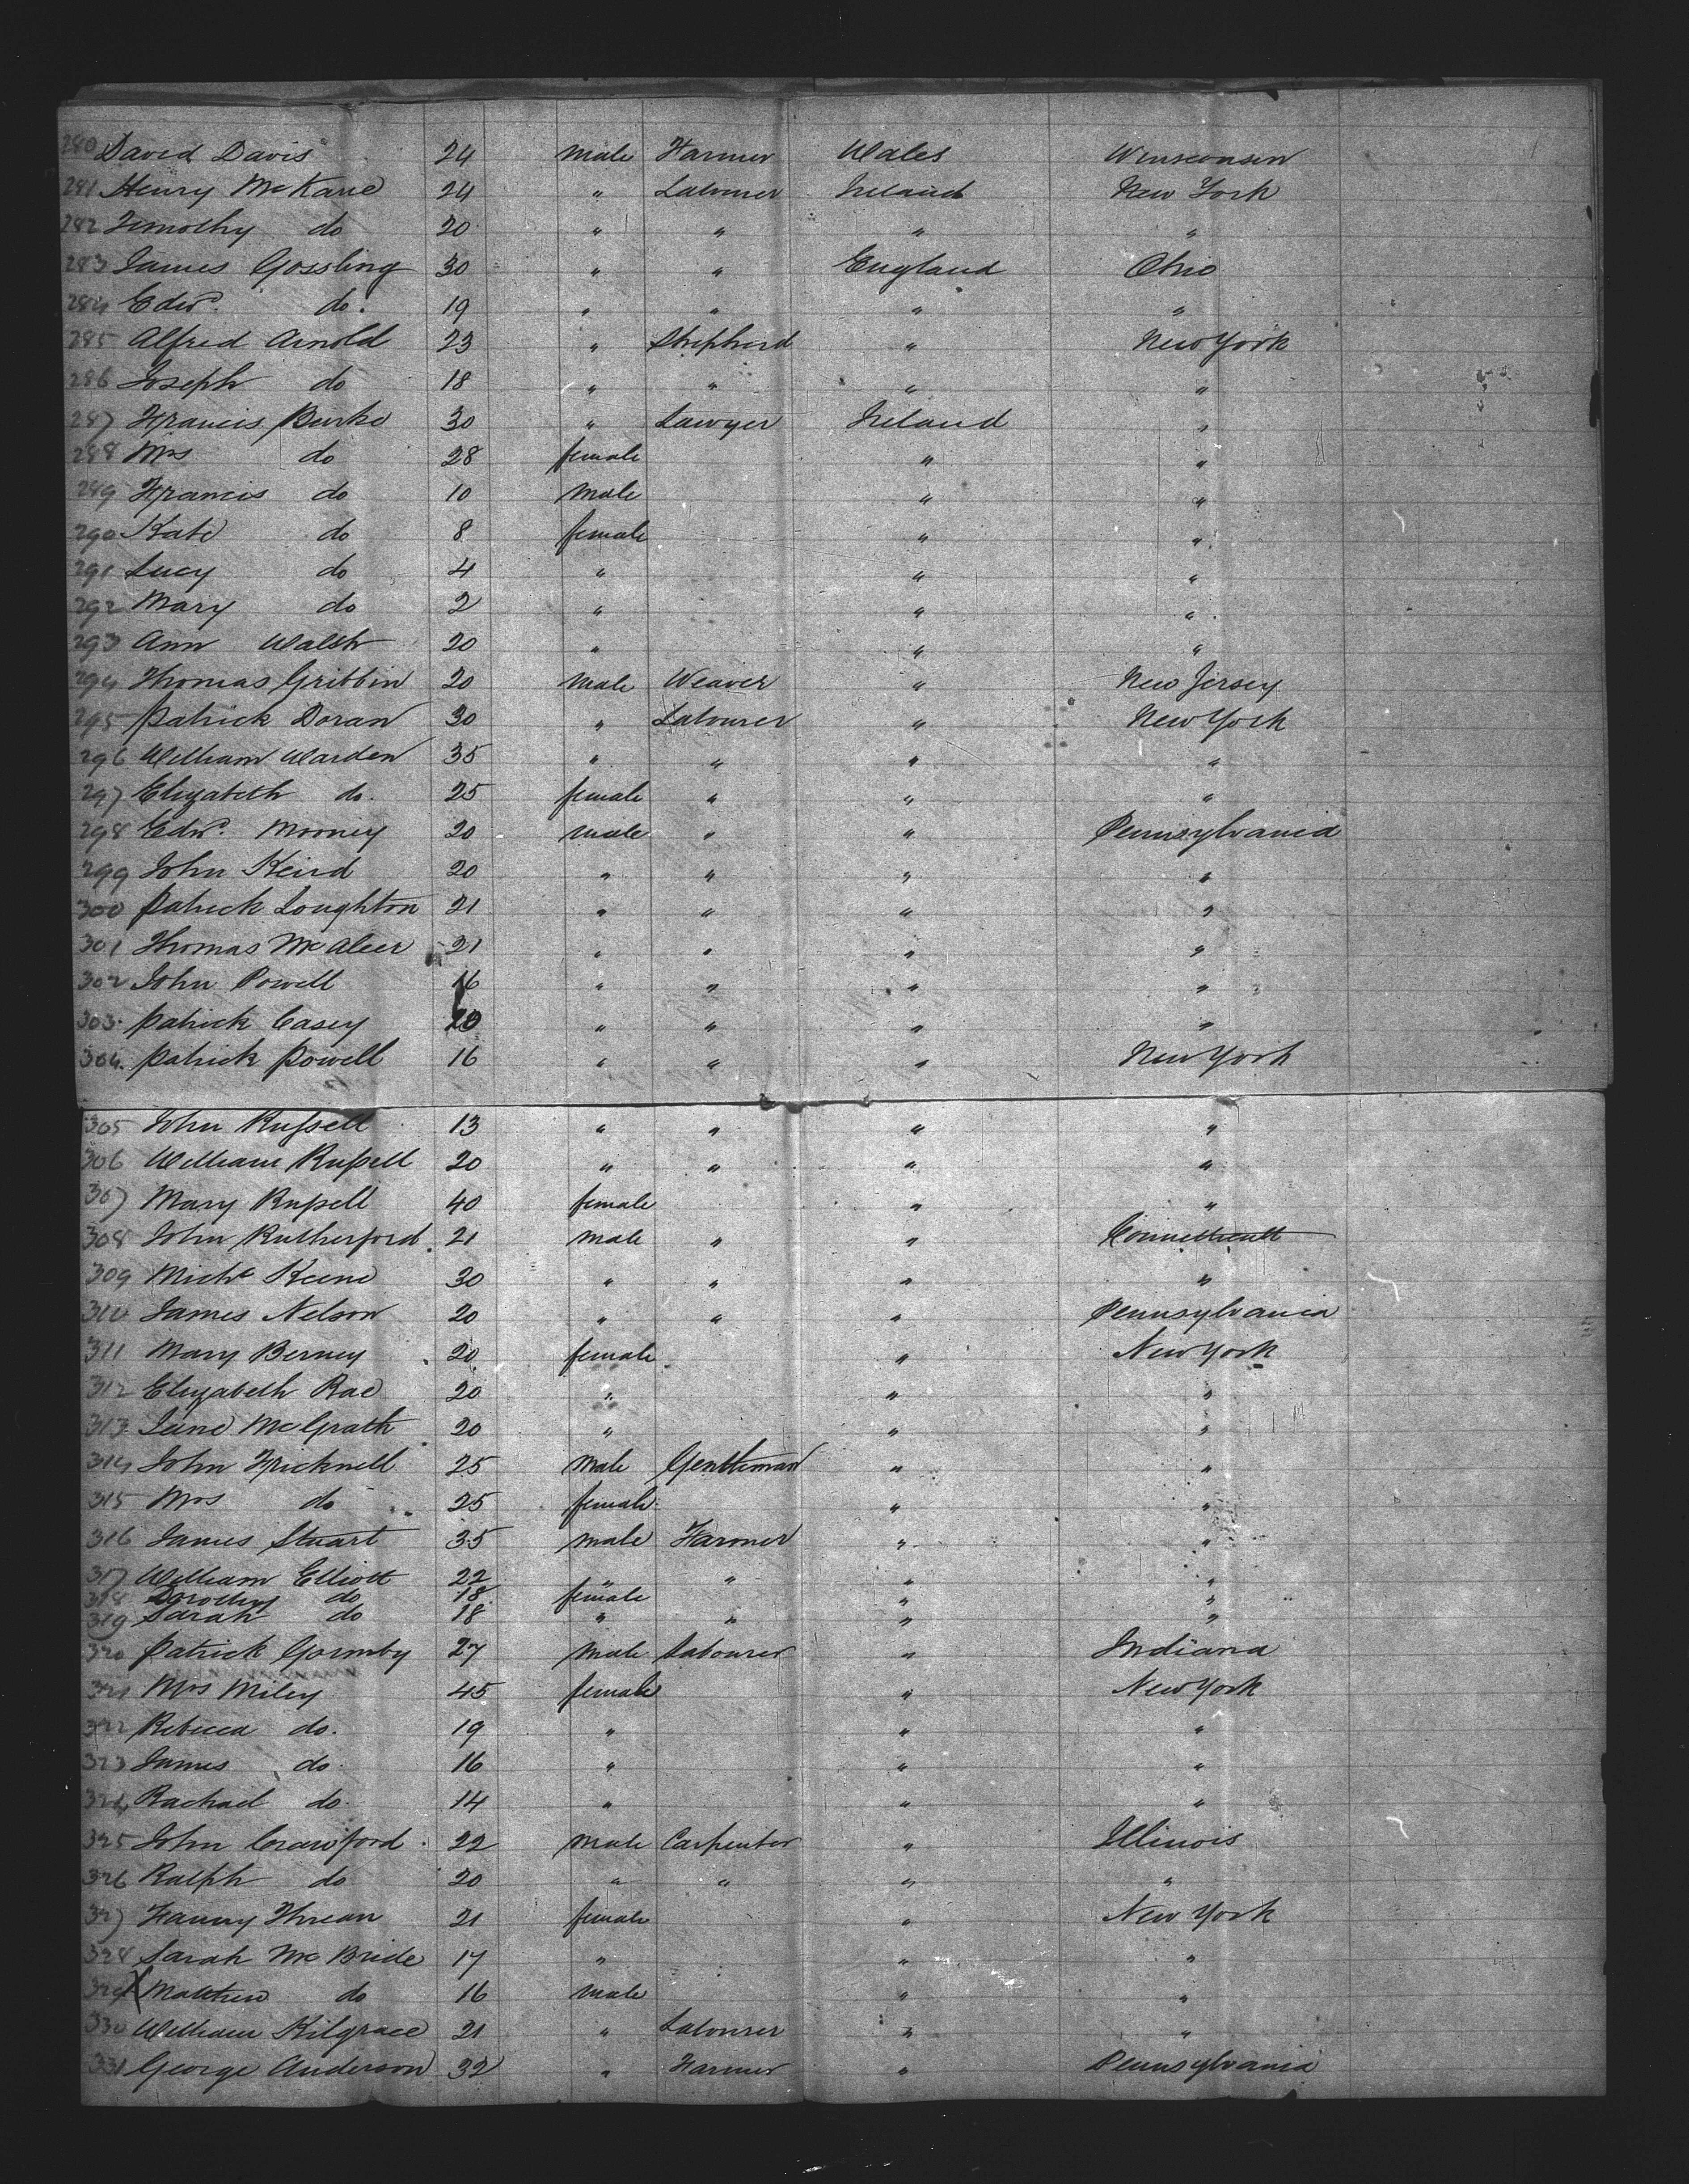 280 David Davis 24 male Farmer Wales Winsconsin
281 Henry McKane 24 " Labourer Ireland New York
282 Timothy do 20 " " " "
283 James Gossling 30 " " England Ohio
284 Edwd. do. 19 " " " "
285 Alfred Arnold 23 " Shepherd " New York
286 Joseph do 18 " " " "
287 Francis Burke 30 " Sawyer Ireland "
288 Mrs do 28 female " "
289 Francis do 10 male " "
290 Kate do 8 female " "
291 Lucy do 4 " " "
292 Mary do 2 " " "
293 Ann Walsh 20 " " "
294 Thomas Gribbin 20 male Weaver " New Jersey
295 Patrick Doran 30 " Labourer " New York
296 William Warden 35 " " " "
297 Elizabeth do. 25 female " " "
298 Edwd. Mooney 20 male " " Pennsylvania
299 John Keird 20 " " " "
300 Patrick Loughton 21 " " " "
301 Thomas McAleer 21 " " " "
302 John Powell 16 " " " "
303. Patrick Casey 20 " " " "
304. Patrick Powell 16 " " " New York
305 John Russell 13 " " " "
306 William Russell 20 " " " "
307 Mary Russell 40 female " "
308 John Rutherford 21 male " " Connetticutt
309 Michl Keene 30 " " " "
310 James Nelson 20 " " " Pennsylvania
311 Mary Berney 20 female " New York
312 Elizabeth Rae 20 " " "
313 Jane McGrath 20 " " "
314 John Frecknell 25 male Gentleman " "
315 Mrs do 25 female " "
316 James Stuart 35 male Farmer " "
317 William Elliott 22 " " " "
318 Dorothy do 18 female " "
319 Sarah do 18 " " " "
320 Patrick Gormby 27 male Labourer " Indiana
321 Mrs Miley 45 female " New York
322 Rebecca do. 19 " " "
323 James do. 16 " " "
324 Rachael do. 14 " " "
325 John Crawford 22 male Carpenter " Illinois
326 Ralph do 20 " " " "
327 Fanny 21 female " New York
328 Sarah McBride 17 " " "
329 X Matthew do 16 male " "
330 William Kilgrace 21 " Labourer " "
331 George Anderson 32 " Farmer " Pennsylvania